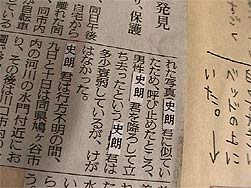 発見
保護
同日午後
自宅から
離れた同
自転車
れた写真史朗君に似てい
たため、呼び止めたところ、
男性史朗君を降ろして立
ち去ったという。史朗君は
多少衰弱しているが、けが
はなかった。
史朗君は行方不明の間、
九日と十日は同県鳩ヶ谷市
内の河川の水門付近にお
り、その後は川口市内
いだ。